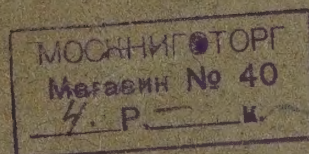 МОСКНИГОТОРГ
Магазин № 40
4. Р. — к.